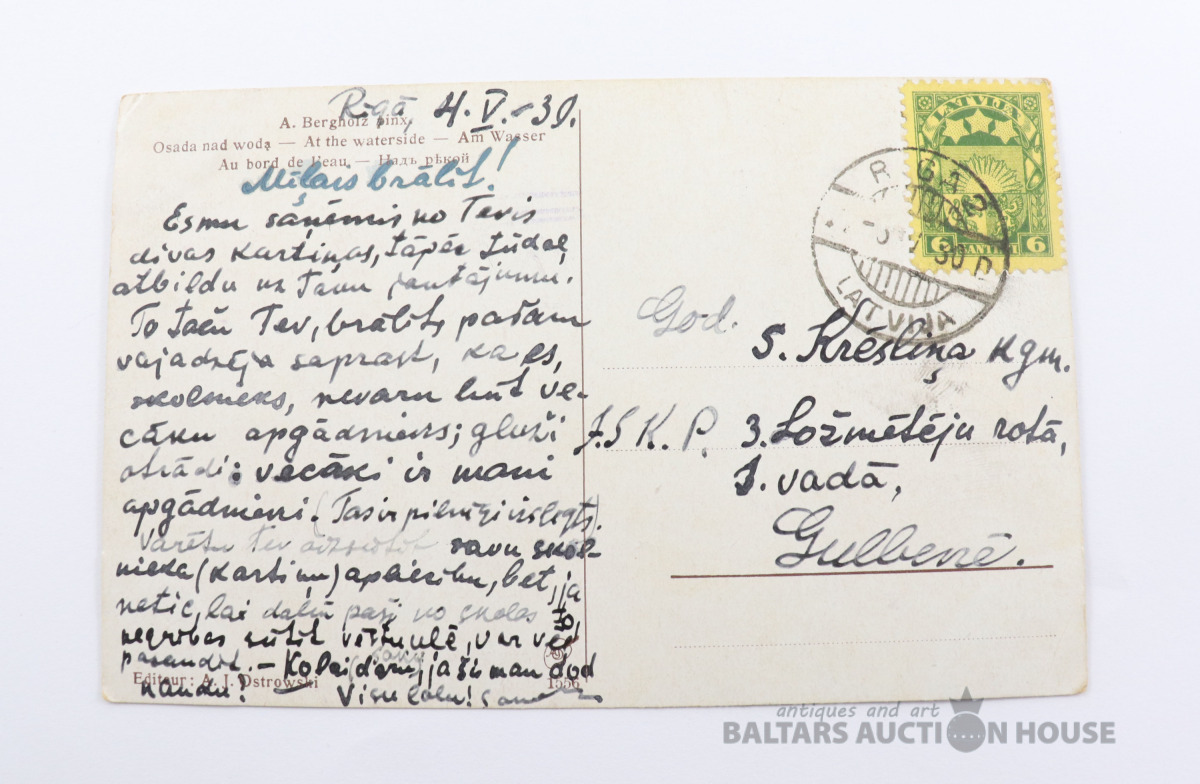 Rīgā, 4. V. - 30.
A. Bergholz pinx.
Osada nad wodą — At the waterside — Am Wasser
Au bord de l'eau. — Надъ рѣкой
Mīļais brālīt!
Esmu saņēmis no Tevis
divas kartiņas, tāpēc tūdaļ
atbildu uz Tavu jautājumu.
To taču Tev, brālīt, pašam
vajadzēja saprast, ka es,
skolnieks, nevaru būt ve-
cāku apgādnieks; gluži
otrādi: vecāki ir mani
apgādnieki. (Tas ir pilnīgi izslēgts).
Varētu Tev aizsūtīt savu skol-
nieka (kartiņu) apliecību, bet, ja
netic, lai daļu paši no skolas
negribas sūtīt vēstulē, var vēl
pazaudēt. — Ko lai daru, ja šis man dod
naudu! Visu labu!
Editeur: A. J. Ostrowski
1556
LATVIJA
6 SANTIMI 6
RIGA
30
LATVIJA
God.
S. Krēsliņa kgm.
J. S. K. P. 3. Ložmētēju rotā,
1. vadā,
Gulbenē.
antiques and art
BALTARS AUCTION HOUSE